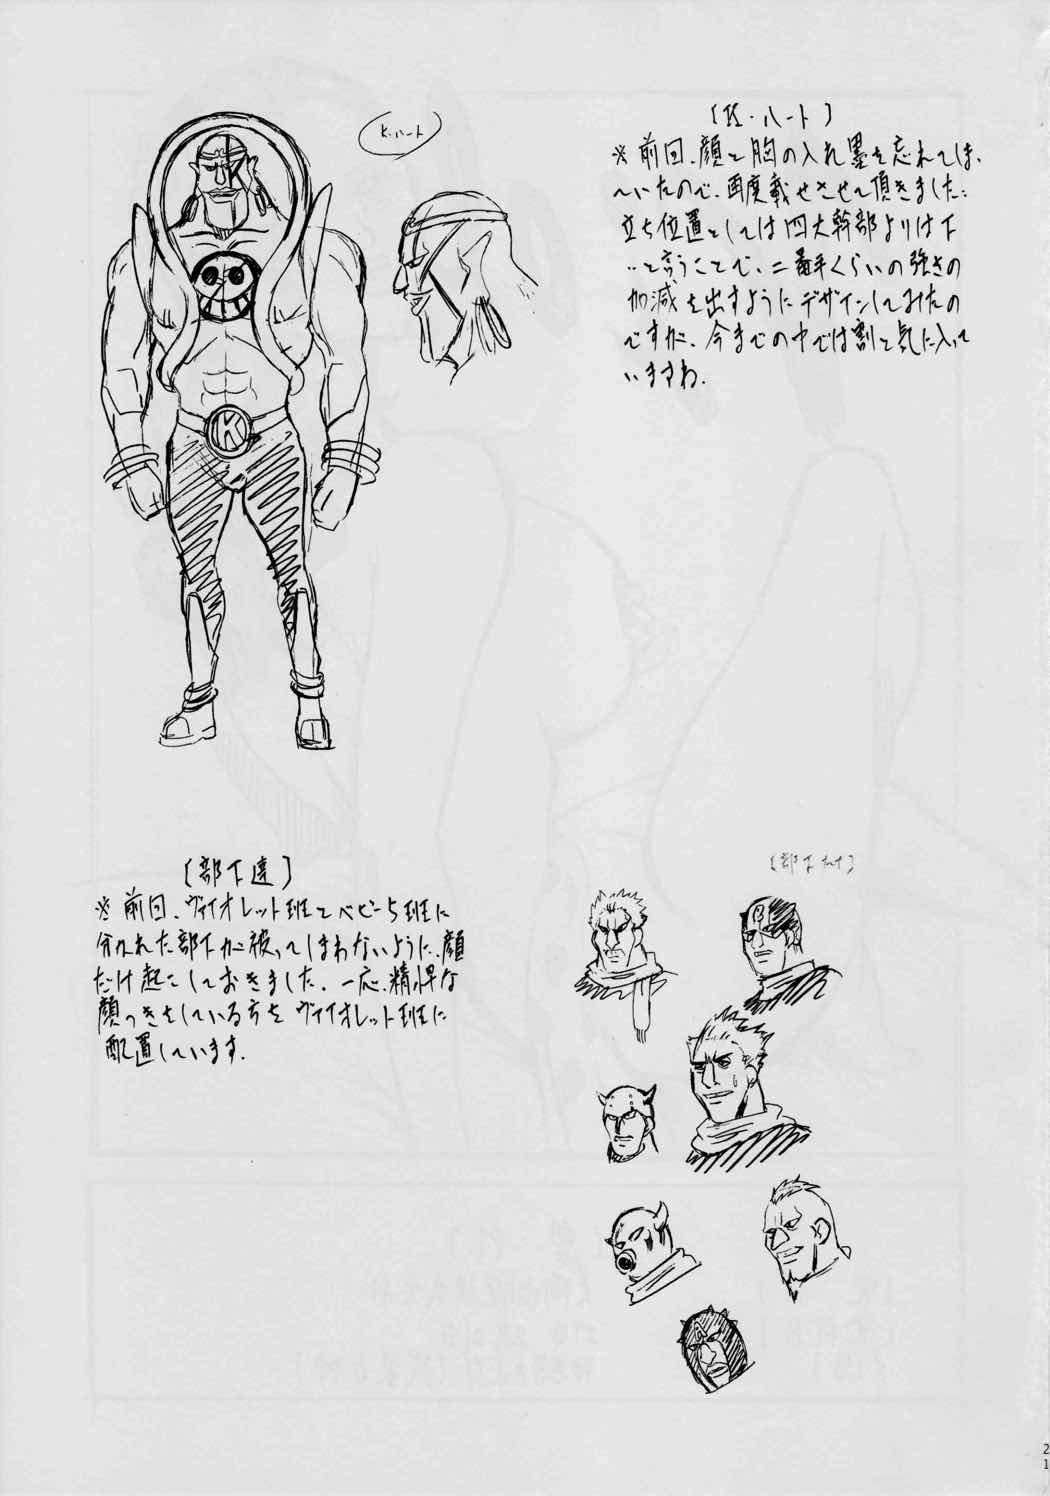 〔K・ハート〕
※前回、顔と胸の入れ墨を忘れてしま
っていたので、再度載せさせて頂きました…
立ち位置としては四大幹部よりは下
…と言うことで、二番手くらいの強さの
加減を出すようにデザインしてみたの
ですが、今までの中では割と気に入って
いますね.
K・ハート
K
〔部下達〕
※前回、ヴァイオレット班とベビー5班に
分かれた部下が被ってしまわないように、顔
だけ起こしておきました. 一応、精悍な
顔つきをしている方を ヴァイオレット班に
配置しています.
21